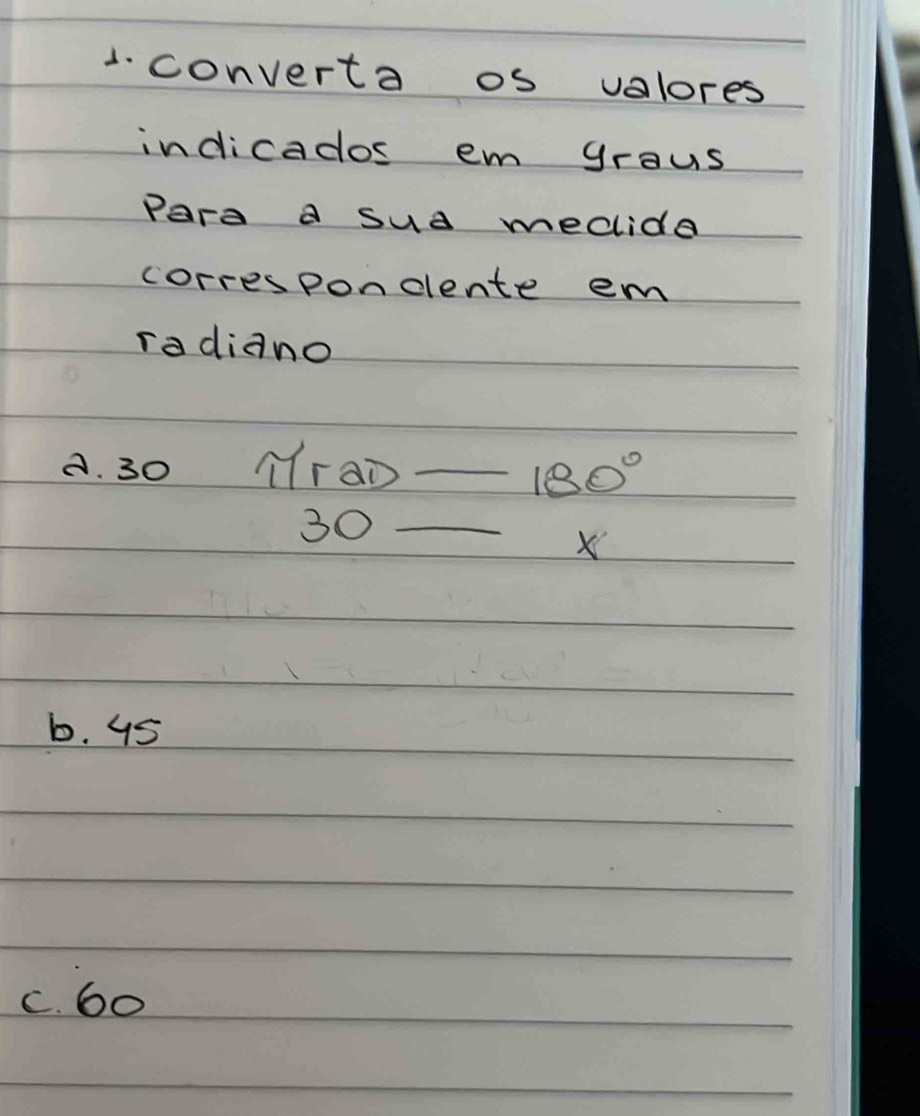 1. converta os valores
indicados em graus
Para a sua medida
correspondente em
radiano
a. 30 πrad — 180°
30 — x
b. 45
c. 60